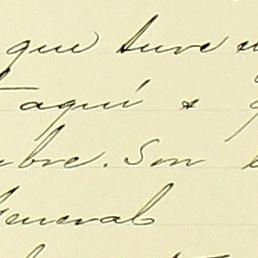 que tuve
aquí
bre. Son
General